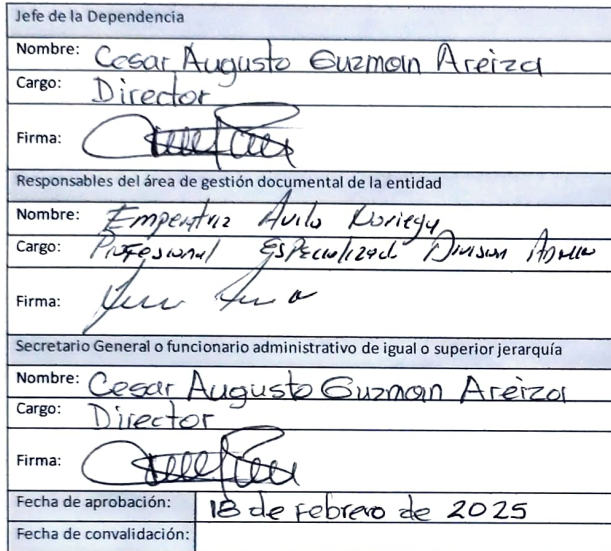 Jefe de la Dependencia
Nombre: Cesar Augusto Guzman Areiza
Cargo: Director
Firma:
Responsables del área de gestión documental de la entidad
Nombre: Emperatriz Avila Noriega
Cargo: Profesional Especializado Division
Firma:
Secretario General o funcionario administrativo de igual o superior jerarquía
Nombre: Cesar Augusto Guzman Areiza
Cargo: Director
Firma:
Fecha de aprobación: 18 de Febrero de 2025
Fecha de convalidación: